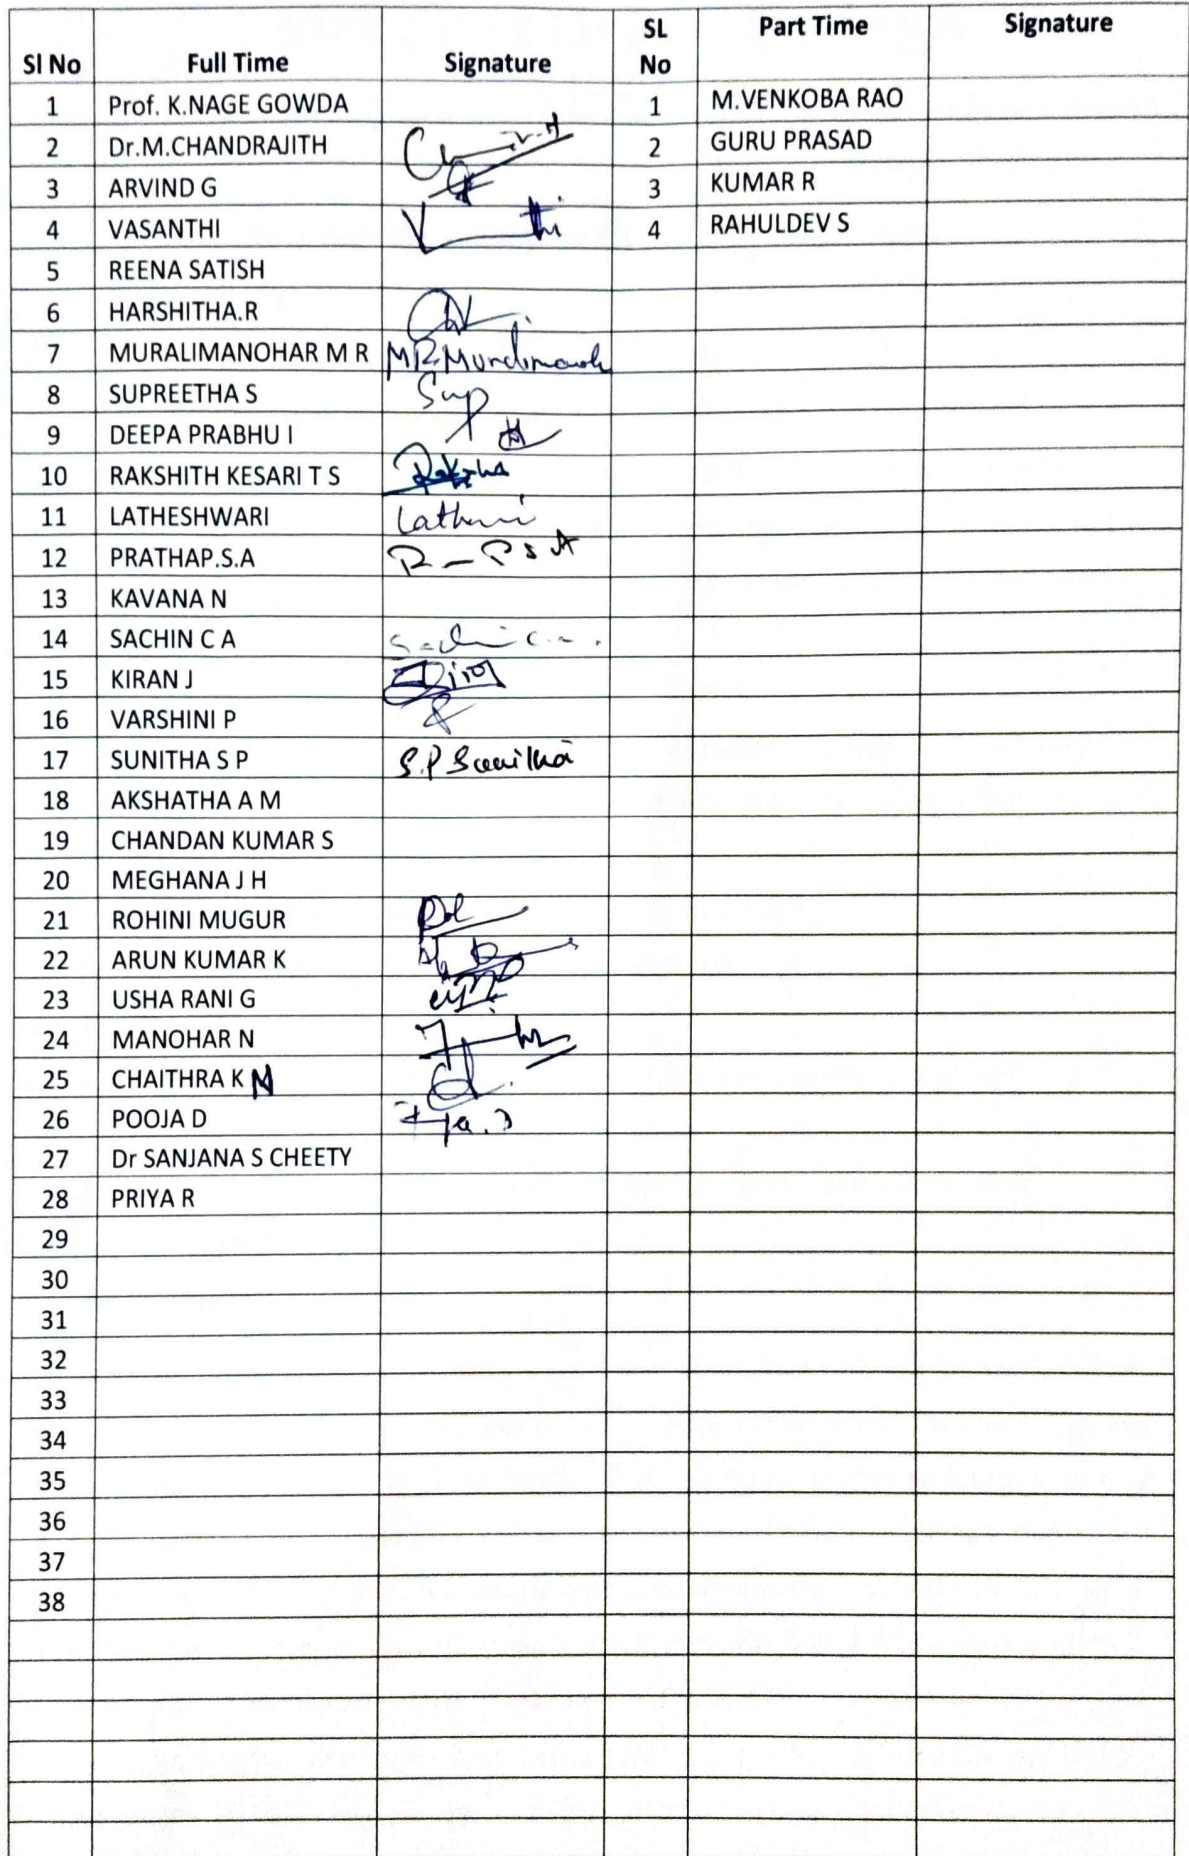 Sl No Full Time Signature SL No Part Time Signature
1 Prof. K.NAGE GOWDA 1 M.VENKOBA RAO
2 Dr.M.CHANDRAJITH 2 GURU PRASAD
3 ARVIND G 3 KUMAR R
4 VASANTHI 4 RAHULDEV S
5 REENA SATISH
6 HARSHITHA.R
7 MURALIMANOHAR M R
8 SUPREETHA S Sup
9 DEEPA PRABHU I
10 RAKSHITH KESARI T S
11 LATHESHWARI
12 PRATHAP.S.A
13 KAVANA N
14 SACHIN C A
15 KIRAN J
16 VARSHINI P
17 SUNITHA S P S.P Sunitha
18 AKSHATHA A M
19 CHANDAN KUMAR S
20 MEGHANA J H
21 ROHINI MUGUR
22 ARUN KUMAR K
23 USHA RANI G
24 MANOHAR N
25 CHAITHRA K N
26 POOJA D
27 Dr SANJANA S CHEETY
28 PRIYA R
29
30
31
32
33
34
35
36
37
38